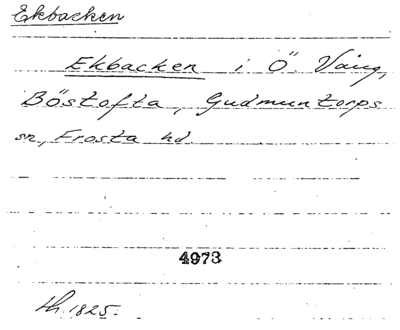 Ekbacken
Ekbacken i Ö Vång,
Böstofta, Gudmuntorps
sn, Frosta hd.
4973
th. 1825.